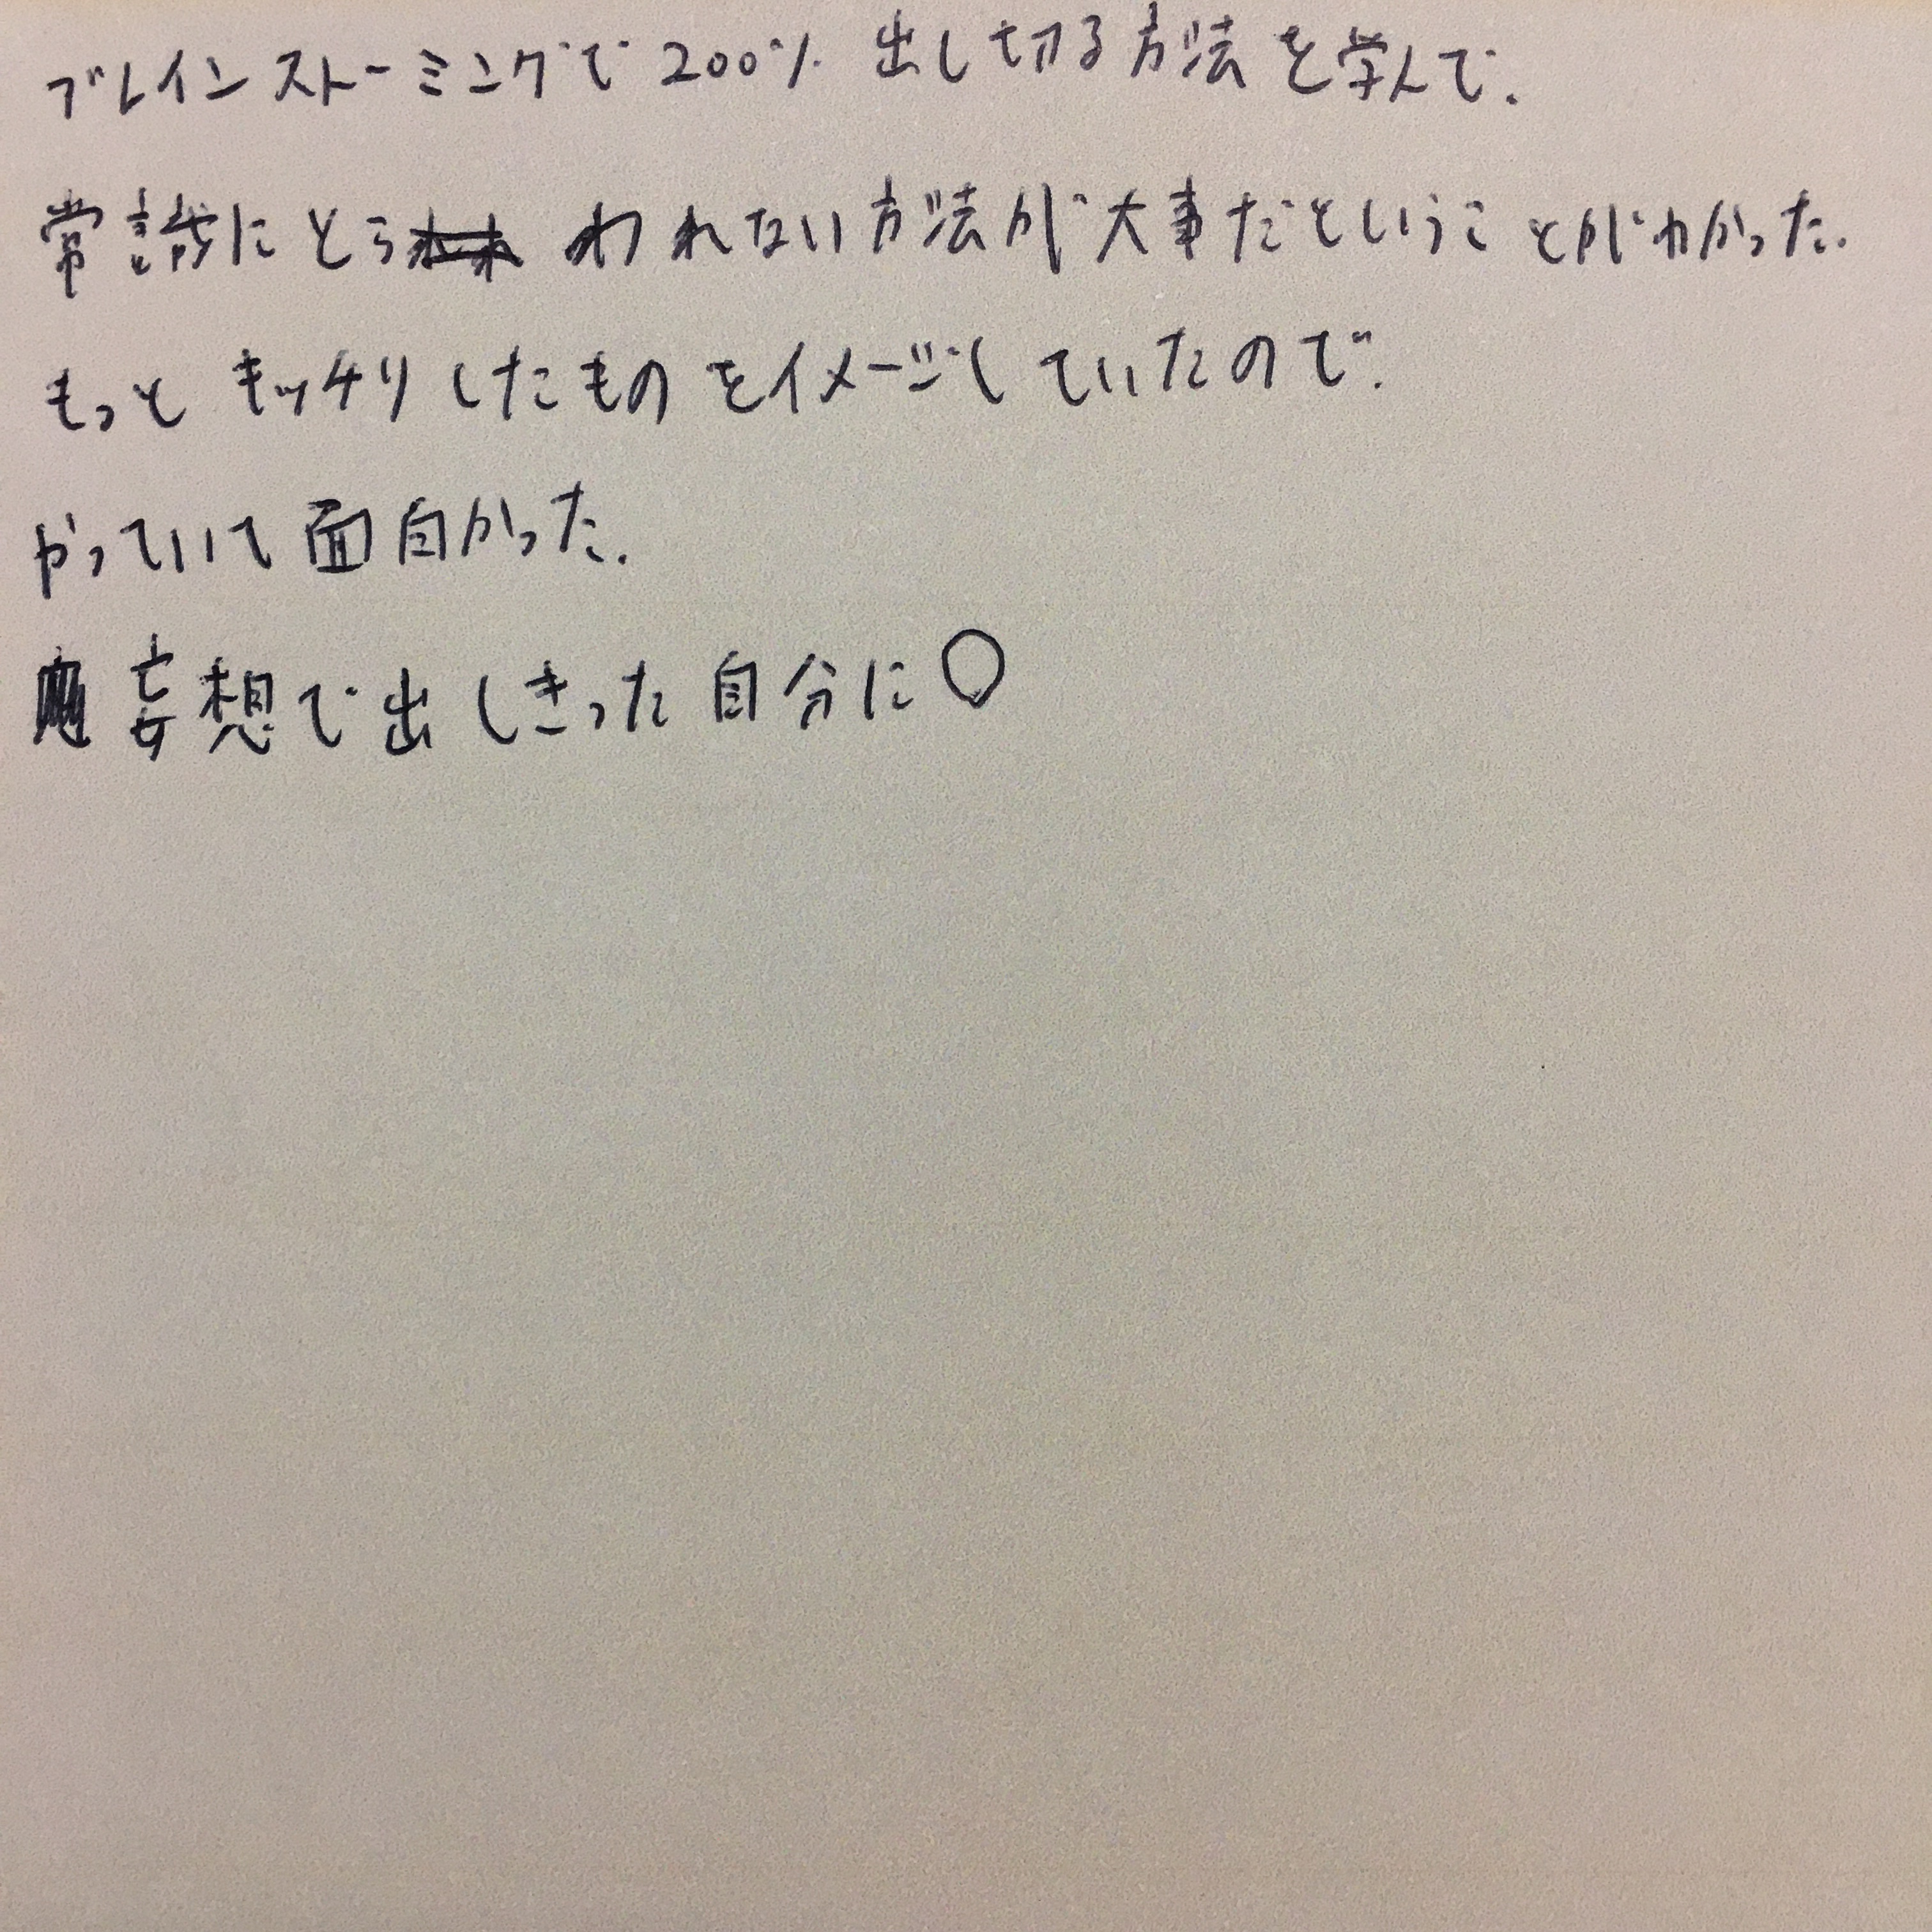 ブレインストーミングで200%出し切る方法を学んで.
常識にとらわれない方法が大事だということがわかった.
もっとキッチリしたものをイメージしていたので.
やっていて面白かった.
妄想で出しきった自分に○